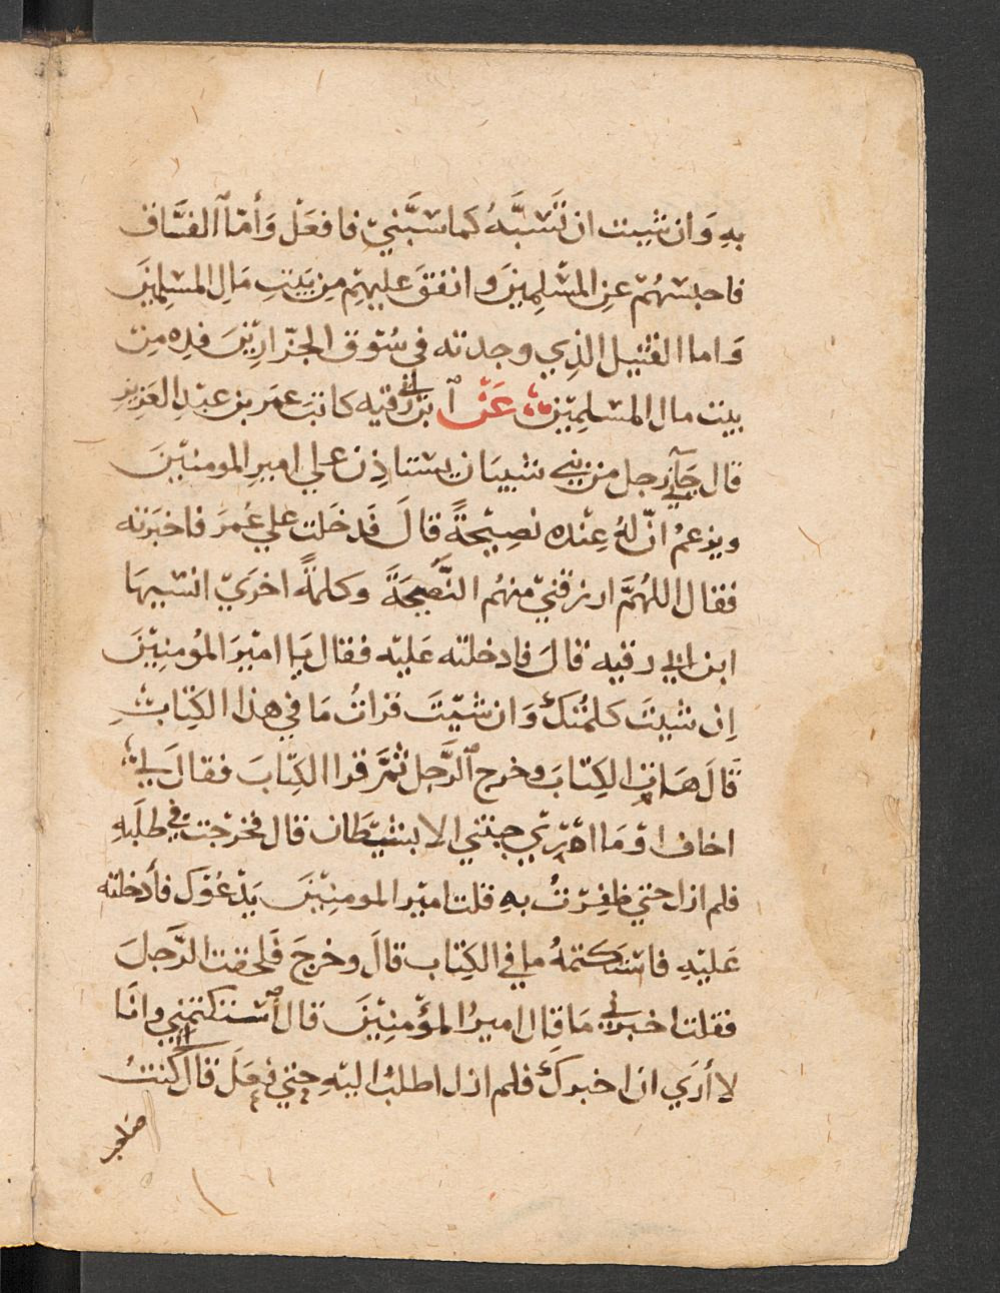 بهِ وَان شيت ان تَسَبَّهُ كَما سَبَّنيّ فافعَلْ وَأمّا الفسَّاق
فاحبسْهُمْ عنِ المسْلِمينَ وانفقَ عليهِمْ مِن بَيتِ مَالِ المسلِمينَ
وَاما القتيل الذِي وجدته في سُوْق الجزّارِيْنَ فدِه مِن
بيت مال المسلمِيْن عَنْ ابن ابي رقيه كاتبَ عمَر بن عبْدِ العَزِيزِ
قال جَآني رجل من بني شيبَان يستاذِن علي امير المومنيْنَ
ويزعمُ انّ لهُ عِنْده نصِيْحةً قالَ فَدخَلت علي عُمرَ فاخبَرته
فقال اللهُمَّ ارزقنيْ منهُم النَّصِيحَةَ وكلمةً اخرَيْ انسْيهَا
ابن ابي رقيه قالَ فادخلته عَليْه فقال يَا اميْرَ المُومنِيْنَ
اِن شيتَ كلمْتُكَ وَان شيْتَ قراتُ مَا في هذا الكِتابِ
قَالَ هَات الكِتابَ وخرج الرَّجل ثمَّ قرا الكِتابَ فقالَ لي
اخاف اوْ مَا ادْرِيْ جيتني الا بشيْطَان قال فخرَجت في طلَبهِ
فلم ازل حتي ظفِرْتُ بهِ قلت اميْر المومنِيْنَ يَدْعُوْك فأدخلته
عَليْهِ فاسْتَكتمهُ ما في الكِتاب قالَ وخرجَ فَلحقت الرَّجلَ
فقلت اخبرني مَا قال اميرُ المؤْمنِيْنَ قال أسْتكتمَنِي وانَا
لا أرَي ان اخبركَ فلم ازل اطلبُ اليْهِ حتي فعَلَ قال كُنتُ